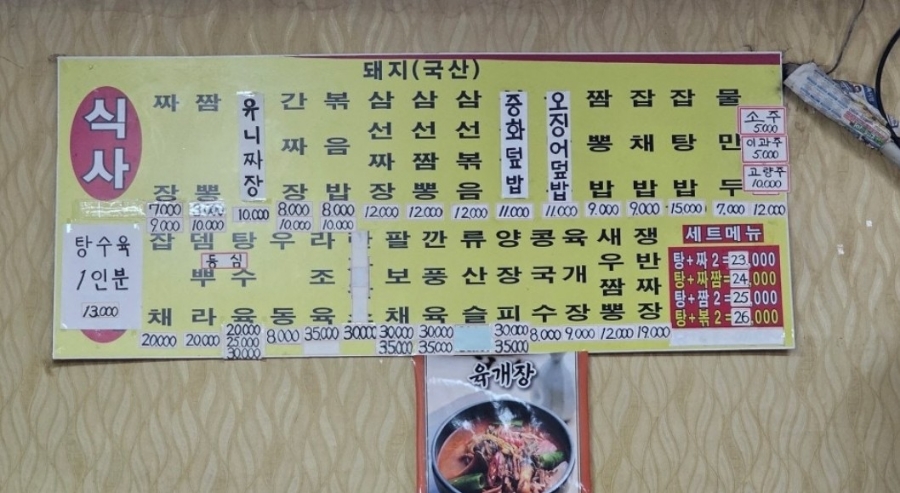 돼지(국산)
식사
짜장 7000 9,000
짬뽕 10,000
유니짜장 10,000
간짜장 8,000 10,000
볶음밥 8,000 10,000
삼선짜장 12,000
삼선짬뽕 12,000
삼선볶음 12,000
중화덮밥 11,000
오징어덮밥 11,000
짬뽕밥 9,000
잡채밥 9,000
잡탕밥 15,000
물만두 7,000
12,000
소주 5.000
이과주 5.000
고량주 10,000
탕수육
1인분
13,000
잡채 20000
뎀뿌라 20000
등심
탕수육 20000 25000 30000
우동 8,000
라조육 35000
30000
팔보채 30000 35000
깐풍육 30000 35000
류산슬
양장피 30000 35000
콩국수 8,000
육개장 9,000
새우짬뽕 12,000
쟁반짜장 19,000
세트메뉴
탕+짜2=23,000
탕+짜짬=24,000
탕+짬2=25,000
탕+볶2=26,000
육개장